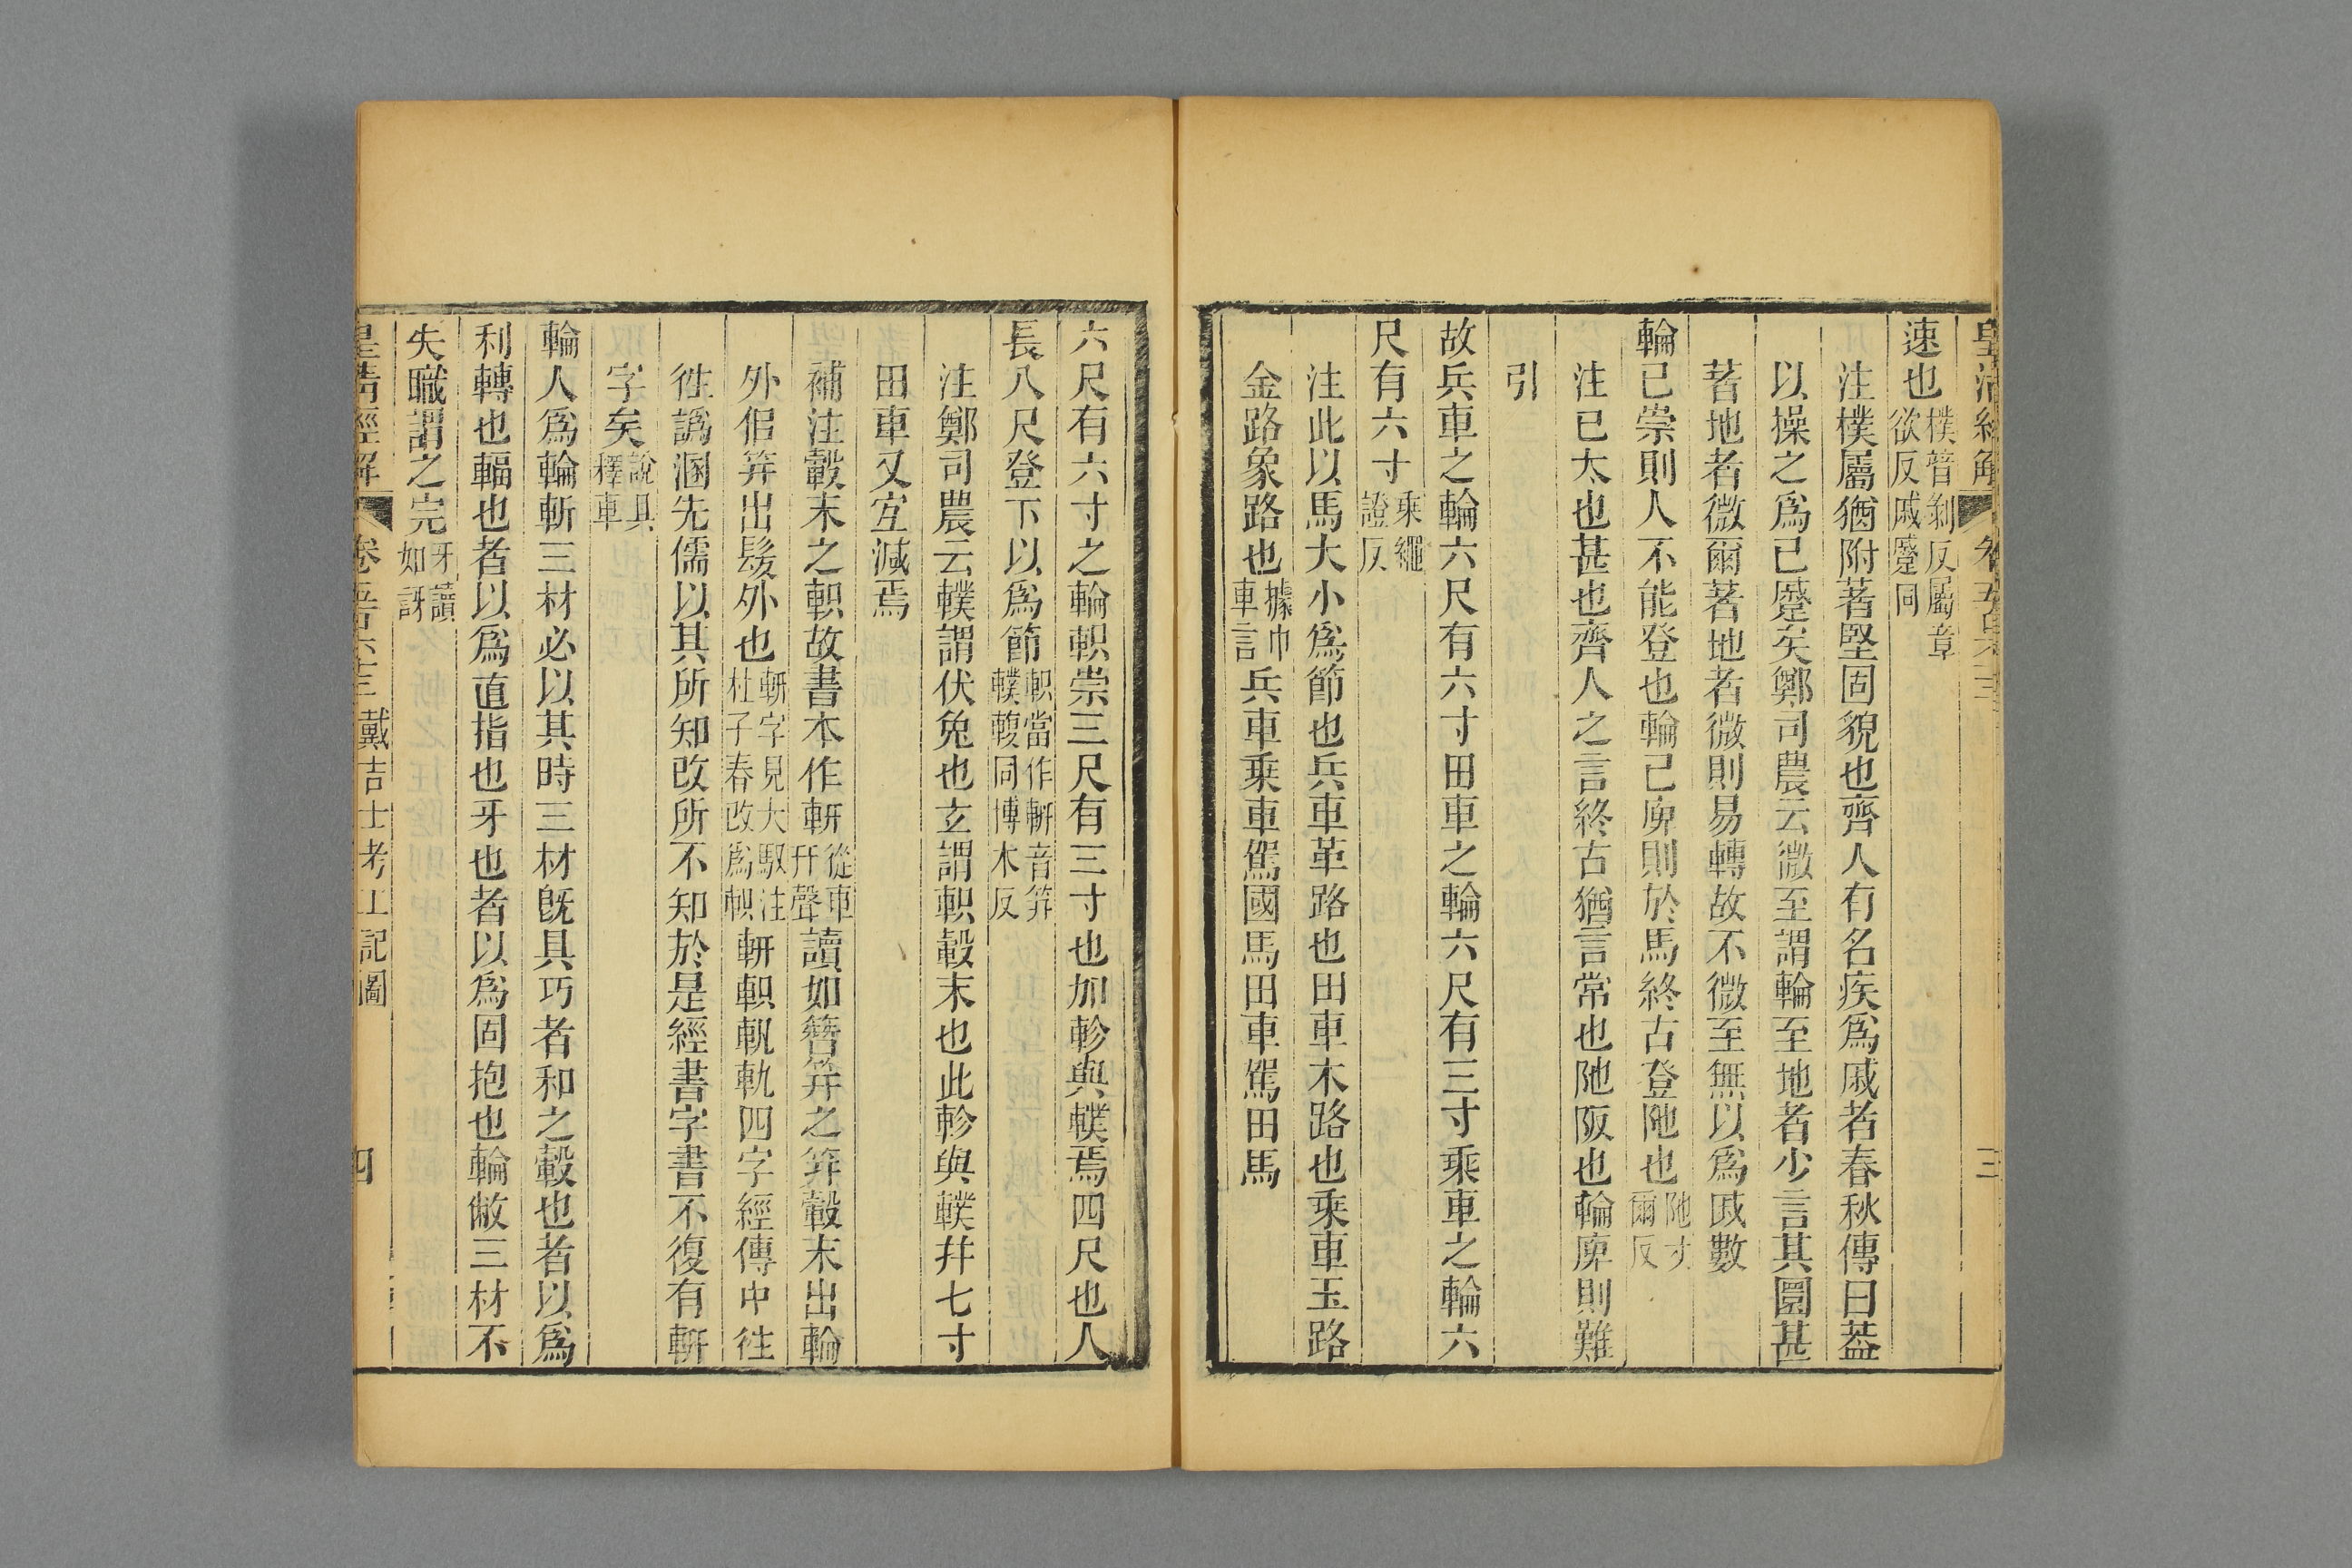 速也樸音剝反屬章欲反戚蹙同
注樸屬猶附著堅固貌也齊人有名疾爲戚者春秋傳曰葢
以操之爲已蹙矣鄭司農云微至謂輪至地者少言其圜甚
著地者微爾著地者微則易轉故不微至無以爲戚數
輪已崇則人不能登也輪已庳則於馬終古登阤也阤寸爾反
注已太也甚也齊人之言終古猶言常也阤阪也輪庳則難
引
故兵車之輪六尺有六寸田車之輪六尺有三寸乘車之輪六
尺有六寸乘繩證反
注此以馬大小爲節也兵車革路也田車木路也乘車玉路
金路象路也據巾車言兵車乘車駕國馬田車駕田馬
六尺有六寸之輪軹崇三尺有三寸也加軫與轐焉四尺也人
長八尺登下以爲節軹當作䡉音筓轐䡩同博木反
注鄭司農云轐謂伏兔也玄謂軹轂末也此軫與轐幷七寸
田車又宜減焉
補注轂末之軹故書本作䡉從車幵聲讀如簪筓之筓轂末出輪
外佀筓出髮外也䡉字見大馭注杜子春改爲軹䡉軹軓軌四字經傳中徃
徃譌溷先儒以其所知改所不知於是經書字書不復有䡉
字矣說具釋車
輪人爲輪斬三材必以其時三材旣具巧者和之轂也者以爲
利轉也輻也者以爲直指也牙也者以爲固抱也輪敝三材不
失職謂之完牙讀如訝
皇清經解 戴吉士考工記圖 四